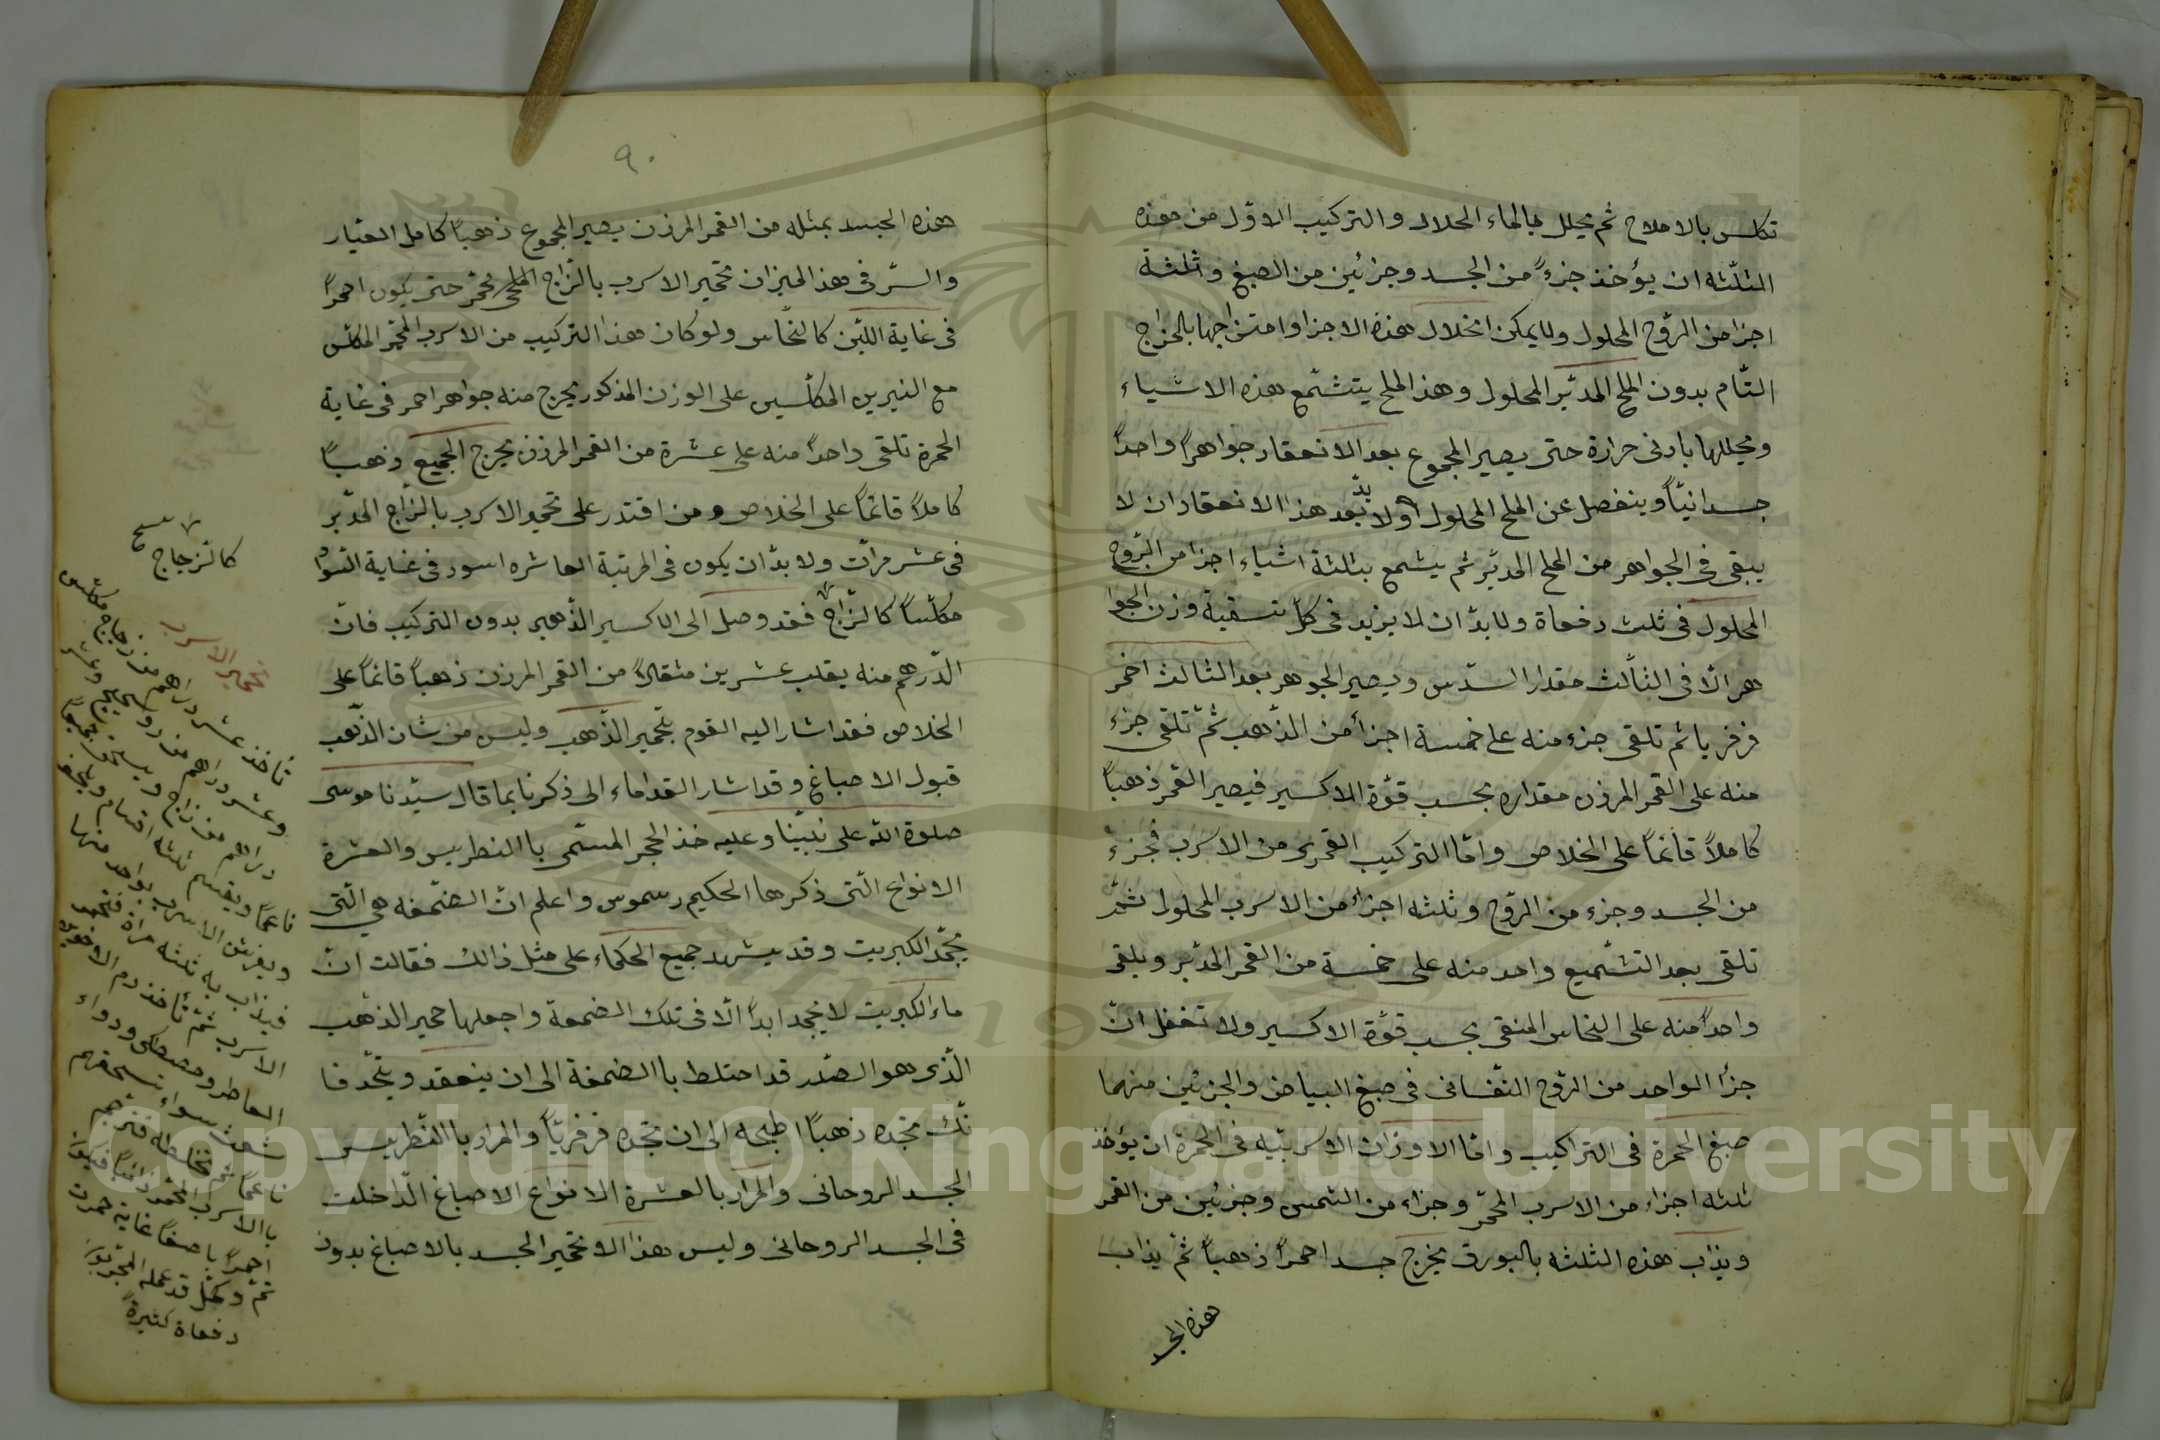 تكلس بالاملاح ثم يحلل بالماء الحلال والتركيب الاوّل من هذه
الثلثه ان يؤخذ جزءً من الجسد وجزئين من الصبغ وثلثة
اجزا من الرّوح المحلول ولا يمكن انحلال هذه الاجزا وامتزاجها بالمزاج
التّام بدون الملح المدبّر المحلول وهذا الملح يتشمّع هذه الاشياء
ويحللها بادنى حرارة حتى يصير المجموع بعد الانعقاد جواهراً واحداً
جسدانيّاً وينفصل عن الملح المحلول اولا ولابدّ بعد هذا الانعقاد ان لا
يبقى فى الجواهر من الملح المدبّر ثم يشمع بثلثة اشياء اجزا من الرّوح
المحلول فى ثلث دفعاة ولابدّ ان لا يزيد فى كلّ تسقية وزن الجوا
هر الّا فى الثّالث مقدار السّدس ويصير الجوهر بعد الثالث احمر
فرفريا ثم تلقى جزء منه على خمسة اجزأ من الذّهب ثمّ تلقى جزء
منه على القمر المرزن مقداره بحسب قوّة الاكسير فيصير القمر ذهباً
كاملاً قائماً على الخلاص وامّا التركيب القمرى من الاسرب فجزءً
من الجسد وجزء من الرّوح وثلثه اجزأ من الاسرب المحلول ثمّ
تلقى بعد التشميع واحد منه على خمسة من القمر المدبّر ويلقى
واحداً منه على النحاس المنقى بحسب قوّة الاكسير ولا تغفل انّ
جزأ الواحد من الرّوح النّفسانى فى صبغ البياض والجزئين منهما
صبغ الحمرة فى التراكيب وامّا الاوزان الاسربيّه فى الحمرة ان يؤخذ
ثلثه اجزاء من الاسرب المحمّر وجزاء من الشمس وجزئين من القمر
ويذاب هذه الثلثه بالبورق يخرج جسد احمراً ذهباً ثمّ يذاب
هذه الجسد
٩٠
هذه الجسد بمثله من القمر المرزن يصير المجموع ذهباً كامل العيار
والسّر فى هذ الميزان تحمير الاسرب بالزّاج الملحى محمّر حتى يكون احمراً
فى غاية اللّين كالنّحاس ولو كان هذا التركيب من الاسرب المحمّر المكلّس
مع النيرين المكلّسين على الوزن المذكور يخرج منه جواهر احمر فى غاية
الحمرة تلقى واحداً منه على عشرة من القمر المرزن يخرج الجميع ذهباً
كاملاً قائماً على الخلاص ومن اقتدر على تحمير الاسرب بالزّاج المدبّر
فى عشر مرّات ولابدّ ان يكون فى المرتبة العاشره اسود فى غاية السّواد
مكلّساً كالزّاج فقد وصل الى الاكسير الذّهبى بدون التركيب فانّ
الدّرهم منه يقلب عشرين مثقالاً من القمر المرزن ذهباً قائماً على
الخلاص فقد اشار اليه القوم بتحمير الذّهب وليس من شان الذّهب
قبول الاصباغ وقد اشار القدماء الى ذكرنا بما قال سيّدنا موسى
صلوة الله على نبيّنا وعليه خذ الحجر المسمّى باالنطريس والعشرة
الانواع الّتى ذكرها الحكيم رسموس واعلم انّ الصّمغه هى الّتى
تجمّد الكبريت وقد يشهد جميع الحكماء على مثل ذالك فقالت انّ
ماء الكبريت لا يجمد ابداً الّا فى تلك الصمغة واجعلها خمير الذّهب
الّذى هو الصّدر قد اختلط باالصّمغة الى ان ينعقد ويتجمّد فا
نّك تجده ذهباً اطبخه الى ان تجده فرفريّاً والمراد باالنّطريس
الجسد الروحانى والمراد بالعشرة الانواع الاصباغ الدّاخلت
فى الجسد الروحانى وليس هذا الا تخمير الجسد بالاصباغ بدون
كالزجاج
تحمير الاسرب
تأخذ عشر دراهم من زجاج مكلّس
وعشر دراهم من روسختج وعشر
دراهم من زاج ويسحق جميعاً
ناعماً ويقسم ثلثه اقسام
ويفرش الاسرب بواحد منها
فيذاب به ثلثه مراة
الاسرب ثمّ تأخذ دم الاخوين
العاطر ومصطكى ودواء
شعث سواء تسحقهم
ناعماً ثمّ تخلطه
باالاسرب
احمراً باصفاً غاية حمرت
تمّ وكمّل قد عمله المجربون
دفعاة كثيرةً